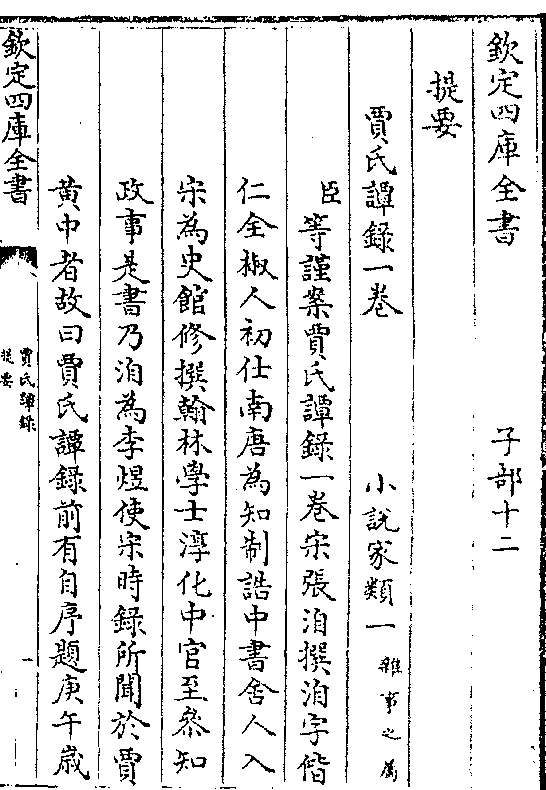 欽定四庫全書　子部十二
提要
賈氏譚錄一卷　小說家類一雜事之屬
臣等謹案賈氏譚錄一卷宋張洎撰洎字偕
仁全椒人初仕南唐為知制誥中書舍人入
宋為史館修撰翰林學士淳化中官至叅知
政事是書乃洎為李煜使宋時錄所聞於賈
黄中者故曰賈氏譚錄前有自序題庚午歲
欽定四庫全書
賈氏譚錄
提要
一